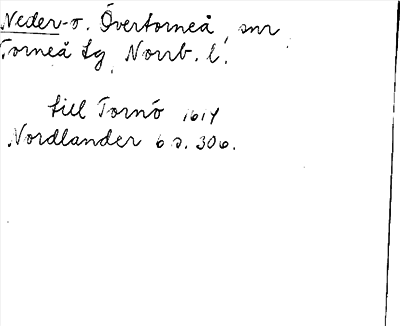 Neder-o. Övertorneå, snr
Torneå tg, Norrb. l.
till Tornö 1614
Nordlander 6 s. 306.